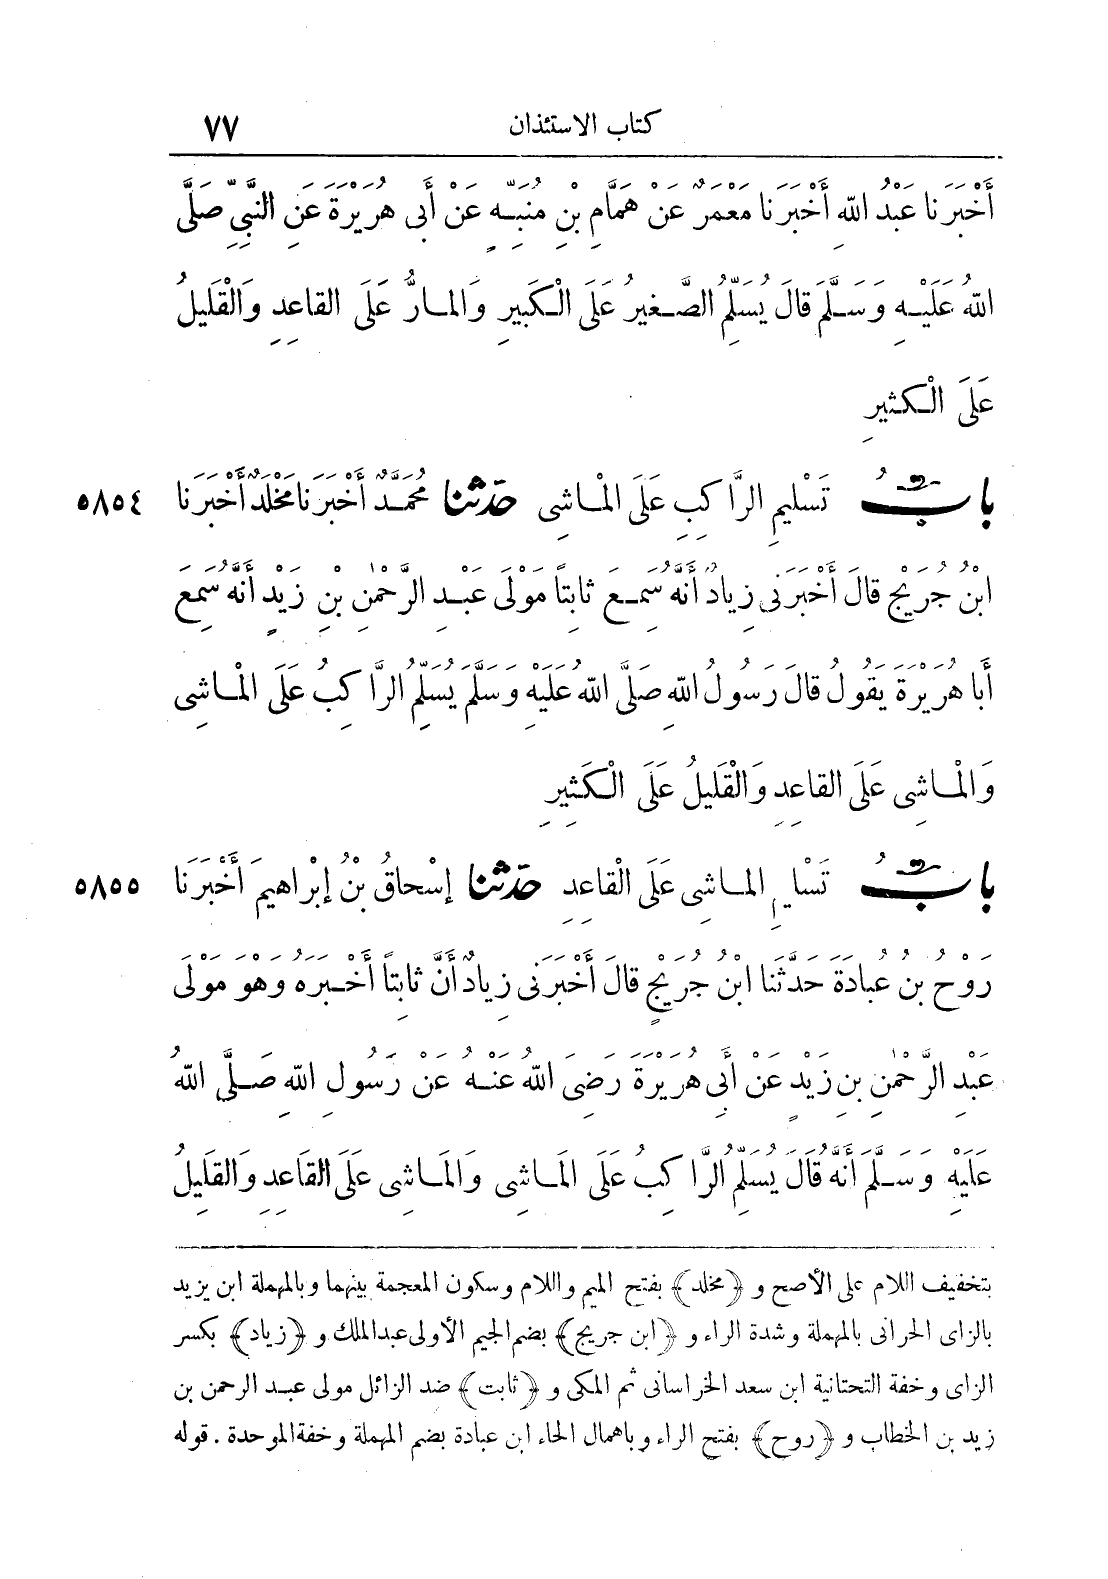 كتاب الاستئذان ٧٧
أَخْبَرَنا عَبْدُ اللهِ أَخْبَرَنا مَعْمَرٌ عَنْ هَمَّامِ بْنِ مُنَبِّهٍ عَنْ أَبى هُرَيْرَةَ عَنِ النَّبِيِّ صَلَّى
اللهُ عَلَيْهِ وَسَلَّمَ قالَ يُسَلِّمُ الصَّغيرُ عَلَى الْكَبيرِ وَالمارُّ عَلَى القاعِدِ وَالْقَليلُ
عَلَى الْكَثيرِ
بابُ تَسْليمِ الرَّاكِبِ عَلَى الْماشِى حَدَّثَنا مُحَمَّدٌ أَخْبَرَنا مَخْلَدٌ أَخْبَرَنا ٥٨٥٤
ابْنُ جُرَيْجٍ قالَ أَخْبَرَنى زِيادٌ أَنَّهُ سَمِعَ ثابِتاً مَوْلَى عَبْدِ الرَّحْمٰنِ بْنِ زَيْدٍ أَنَّهُ سَمِعَ
أَبا هُرَيْرَةَ يَقُولُ قالَ رَسُولُ اللهِ صَلَّى اللهُ عَلَيْهِ وَسَلَّمَ يُسَلِّمُ الرَّاكِبُ عَلَى الْماشِى
وَالْماشِى عَلَى القاعِدِ وَالْقَليلُ عَلَى الْكَثيرِ
بابُ تَسْليمِ الماشِى عَلَى الْقاعِدِ حَدَّثَنا إِسْحاقُ بْنُ إِبْراهيمَ أَخْبَرَنا ٥٨٥٥
رَوْحُ بْنُ عُبادَةَ حَدَّثَنا ابْنُ جُرَيْجٍ قالَ أَخْبَرَنى زِيادٌ أَنَّ ثابِتاً أَخْبَرَهُ وَهْوَ مَوْلَى
عَبْدِ الرَّحْمٰنِ بْنِ زَيْدٍ عَنْ أَبى هُرَيْرَةَ رَضِىَ اللهُ عَنْهُ عَنْ رَسُولِ اللهِ صَلَّى اللهُ
عَلَيْهِ وَسَلَّمَ أَنَّهُ قَالَ يُسَلِّمُ الرَّاكِبُ عَلَى المَاشِى وَالمَاشِى عَلَى القَاعِدِ وَالقَلِيلُ
بتخفيف اللام على الأصح و ﴿مخلد﴾ بفتح الميم واللام وسكون المعجمة بينهما وبالمهملة ابن يزيد
بالزاى الحرانى بالمهملة وشدة الراء و ﴿ابن جريج﴾ بضم الجيم الأولى عبدالملك و ﴿زياد﴾ بكسر
الزاى وخفة التحتانية ابن سعد الخراسانى ثم المكى و ﴿ثابت﴾ ضد الزائل مولى عبد الرحمن بن
زيد بن الخطاب و ﴿روح﴾ بفتح الراء وباهمال الحاء ابن عبادة بضم المهملة وخفة الموحدة . قوله